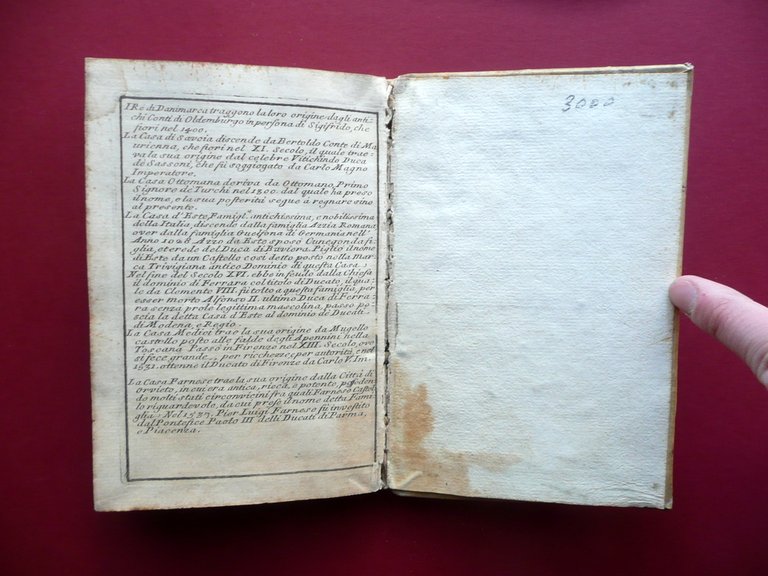 I Re di Danimarca traggono la loro origine dagli anti-
chi Conti di Oldemburgo in persona di Sigifrido, che
fiorì nel 1400.
La Casa di Savoia discende da Bertoldo Conte di Ma
urienna, che fiorì nel XI. Secolo, il quale trae-
va la sua origine dal celebre Vitichindo Duca
de Sassoni, che fù soggiogato da Carlo Magno
Imperatore.
La Casa Ottomana deriva da Ottomano Primo
Signore de Turchi nel 1300. dal quale ha preso
il nome, e la sua posterità segue à regnare sino
al presente.
La Casa d'Este, Famigl.ª antichissima, e nobilissima
della Italia, discende dalla famiglia Azzia Romana
over dalla famiglia Guelfona di Germania nell'
Anno 1028 Azzo da Este sposò Cunegonda fi-
glia, et erede del Duca di Baviera. Piglio il nome
di Este da un Castello così detto posto nella mar-
ca Trivigiana antico Dominio di questa Casa.
Nel fine del Secolo XVI. ebbe in feudo dalla Chiesa
il dominio di Ferrara col titolo di Ducato, il qua-
lo da Clemento VIII. fù tolto a questa famiglia, per
esser morto Alfonso II. ultimo Duca di Ferra-
ra senza prole legittima mascolina, passò po-
scia la detta Casa d'Este al dominio de Ducati
di Modena, e Regio.
La Casa Medici trae la sua origine da Mugello
castello posto alle falde degli Apennini nella
Toscana Passò in Firenze nel XIII. Secolo, ove
si fece grande per ricchezze e per autorità, e nel
1531. ottenne il Ducato di Firenze da Carlo V. Im.
La Casa Farnese trae la sua origine dalla Città di
Orvieto, in cui era antica, ricca, e potente, posseden-
do molti stati circonvicini fra quali Farneso Castel-
lo riguardevole, da cui prese il nome detta Fami
glia: Nel 1537. Pier Luigi Farnese fù investito
dal Pontefice Paolo III delli Ducati di Parma,
e Piacenza.
3000